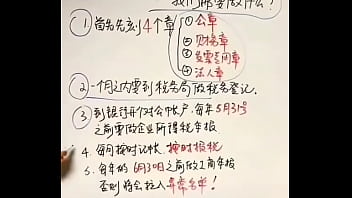 我们都要做什么?
① 首先先刻4个章
① 公章
② 财务章
③ 发票专用章
④ 法人章
② 一个月之内要到税务局做税务登记.
③ 到银行开个对公帐户,每年5月31号
之前要做企业所得税年报
4. 每月按时记帐,按时报税
5. 每年的6月30日之前做工商年报
否则将会拉入异常名单!